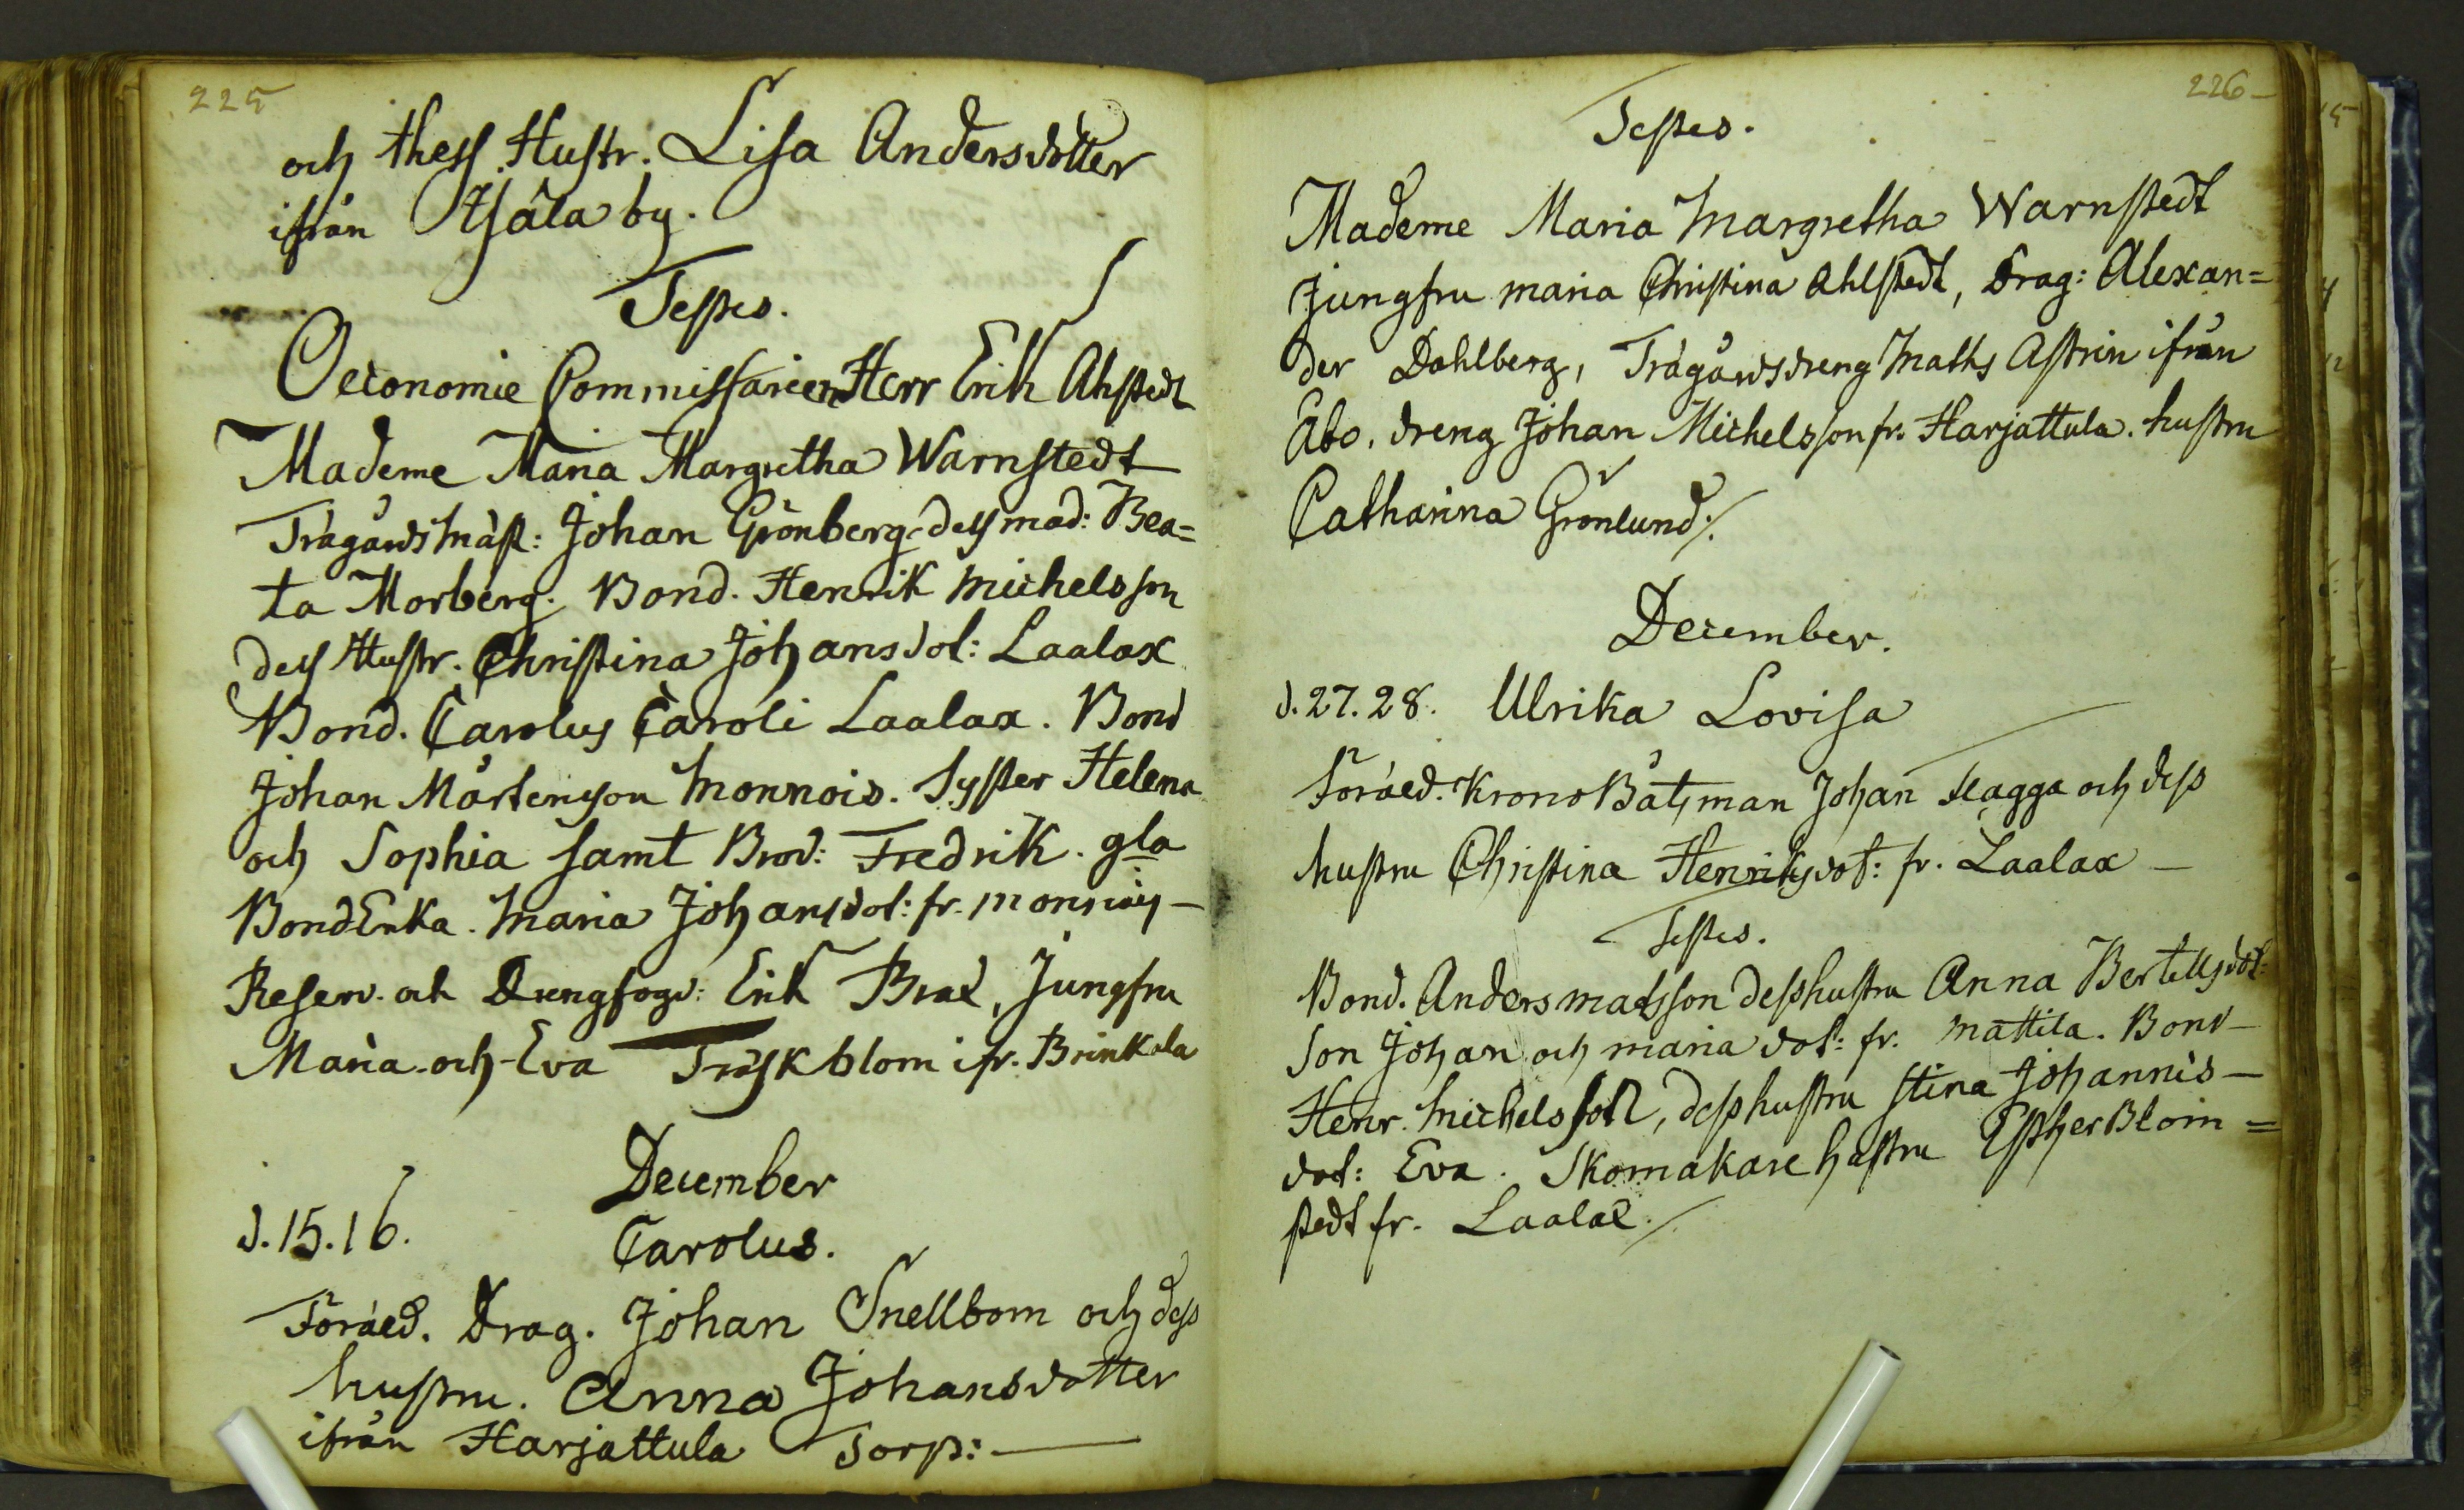 225
och thess Hustr. Lisa Andersdotter
ifrån Ajåla by.
Testes.
Oeconomie Commissarien Herr Erik Ahlstedt
Mademe Maria Margretha Warnstedt
Trägårdsmäst: Johan Grönberg dess mad: Bea=
ta Morberg. Bond. Henrik Michelsson
dess Hustr. Christina Johansdot: Laalax
Bond. Carolus Caroli Laalax. Bond
Johan Mårtensson Monnois. Syster Helena
och Sophia samt Brod: Fredrik. gla
BondEnka. Maria Johansdot: fr. Monnois —
Reserv. och Drengfogd: Erik Brax, Jungfru
Maria och Eva Träskblom ifr. Brinkala
December
d. 15. 16.
Carolus.
Föräld. Drag. Johan Snellbom och dess
hustru. Anna Johansdotter
ifrån Harjattula Torp: —
226
Testes.
Mademe Maria Margretha Warnstedt
Jungfru Maria Christina Ahlstedt, Drag: Alexan=
der Dahlberg, Trägårdsdreng Maths Astrin ifrån
Åbo. dreng Johan Michelsson fr. Harjattula. hustru
Catharina Grönlund ./.
December.
d. 27. 28. Ulrika Lovisa
Föräld. KronoBåtsman Johan Flagga och dess
hustru Christina Henriksdot: fr. Laalax —
Testes.
Bond. Anders Matsson dess hustru Anna Bertillsdot:
Son Johan och Maria dot: fr. Mattila. Bond —
Henr. Michelsson, dess hustru Stina Johannis —
dot: Eva. Skomakare hustru Esther Blom =
stedt fr. Laalax ./.